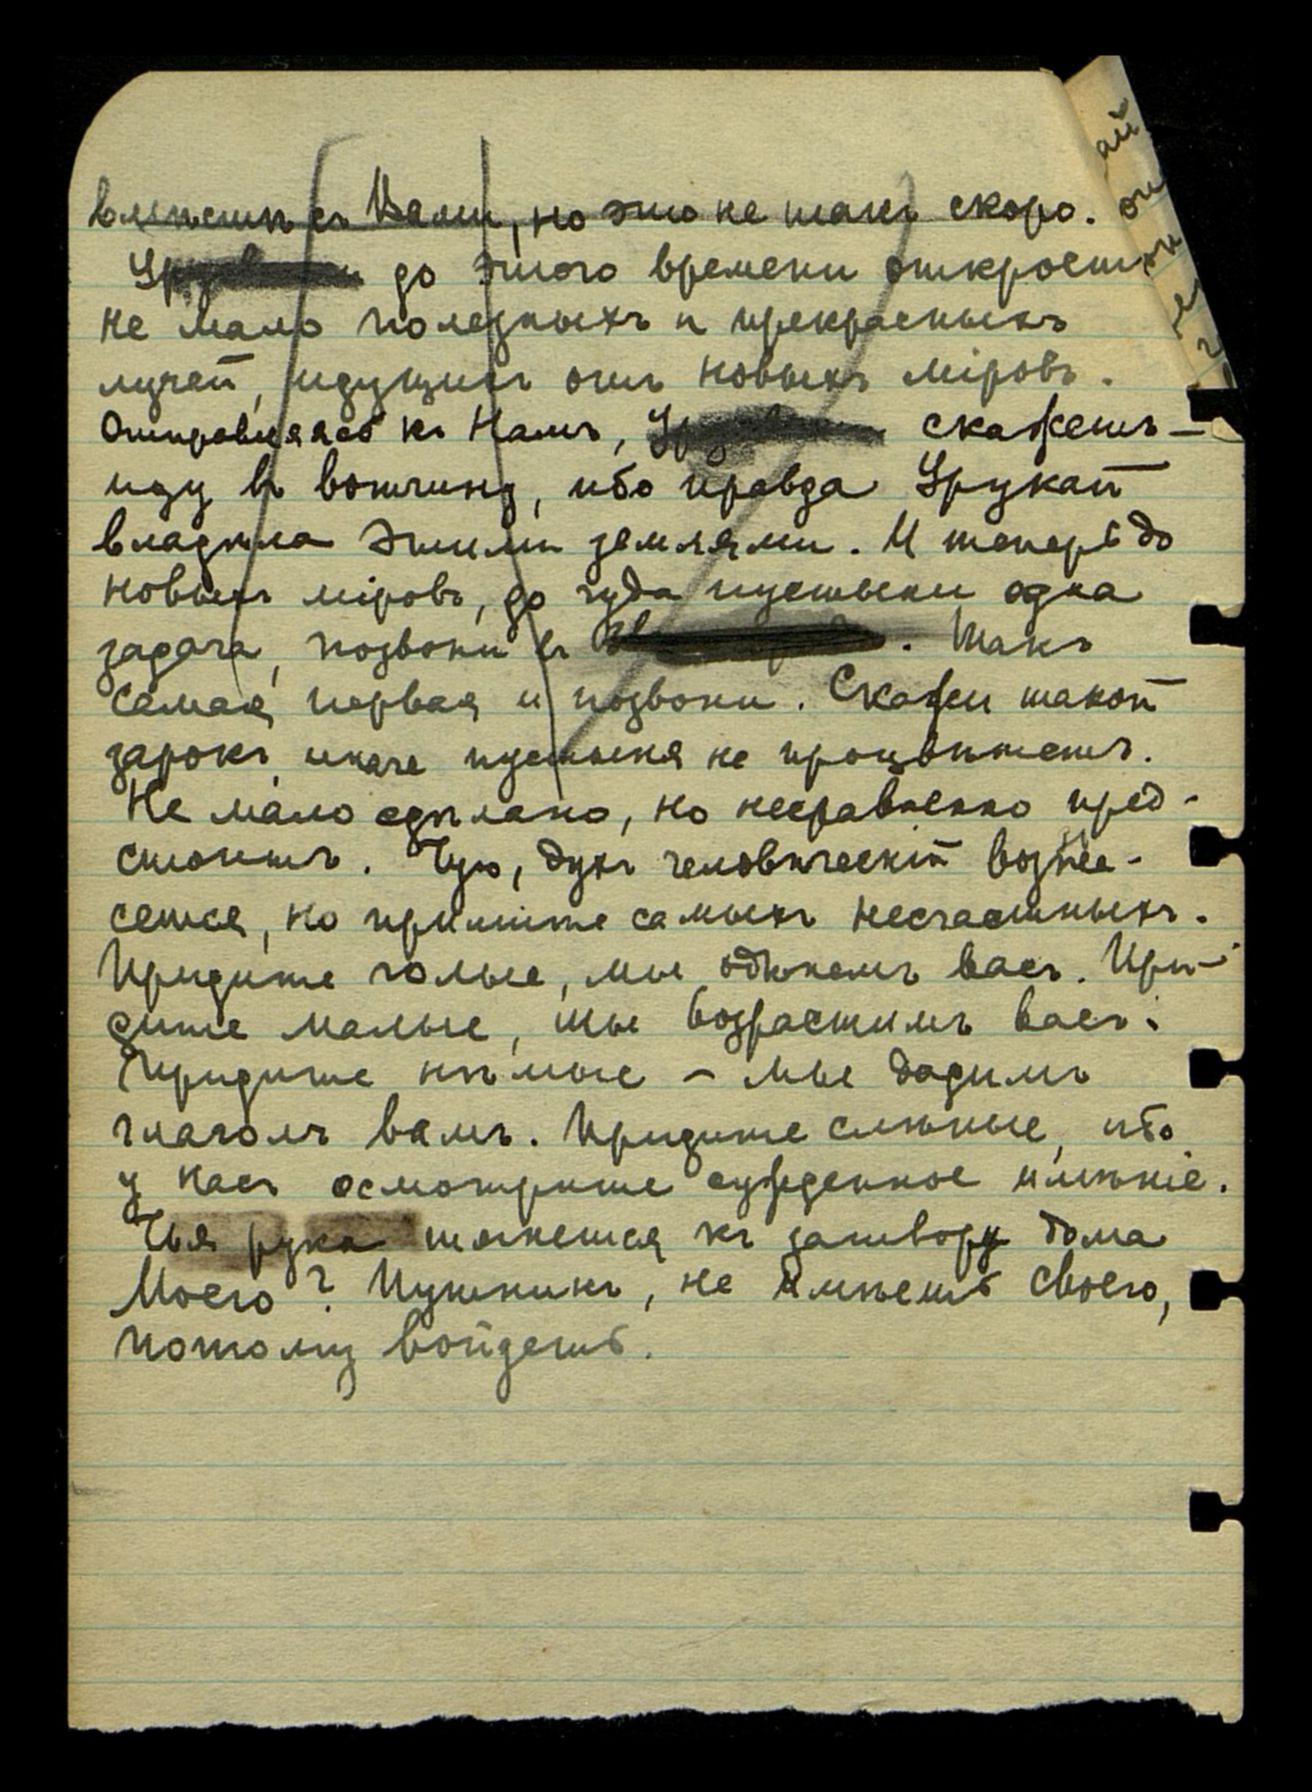 вмѣстѣ съ Вами, но это не такъ скоро.
до этого времени откроетъ
не мало полезныхъ и прекрасныхъ
лучей, идущихъ отъ новыхъ міровъ.
Отправляясь къ Намъ, скажетъ –
иду въ вотчину, ибо правда Урукай
владѣла этими землями. И теперь до
новыхъ міровъ, до чуда пустыни одна
задача, позвони въ . Такъ
самая первая и позвони. Скажи такой
зарокъ, иначе пустыня не процвѣтетъ.
Не мало сдѣлано, но несравненно пред-
стоитъ. Чую, духъ человѣческій вознее-
сется, но примите самыхъ несчастныхъ.
Придите голые, мы одѣнемъ васъ. При-
дите малые, мы возрастимъ васъ.
Придите нѣмые – мы дадимъ
глаголъ вамъ. Придите слѣпые, ибо
у насъ осмотрите сужденное имѣніе.
Чья рука тянется къ затвору дома
Моего? Путникъ, не имѣешь своего,
потому войдешь.